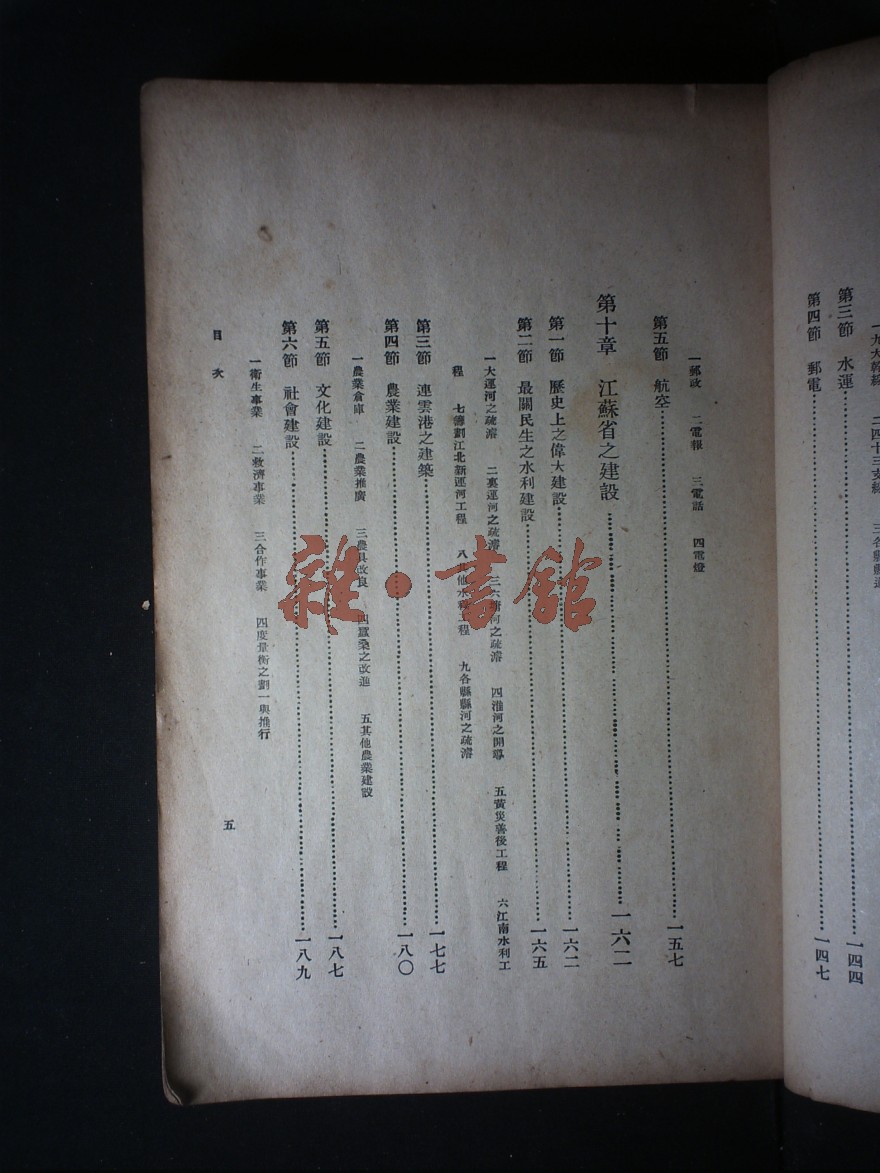 第三節　水運……一四四
第四節　郵電……一四七
一郵政　二電報　三電話　四電燈
第五節　航空……一五七
第十章　江蘇省之建設……一六二
第一節　歷史上之偉大建設……一六二
第二節　最關民生之水利建設……一六五
一大運河之疏濬　二裏運河之疏濬　三六塘河之疏濬　四淮河之開導　五黃災善後工程　六江南水利工
程　七籌劃江北新運河工程　八 他水 工程　九各縣縣河之疏濬
第三節　連雲港之建築……一七七
第四節　農業建設……一八〇
一農業倉庫　二農業推廣　三農具改良　四蠶桑之改進　五其他農業建設
第五節　文化建設……一八七
第六節　社會建設……一八九
一衛生事業　二救濟事業　三合作事業　四度量衡之劃一與推行
目次
五
雜·書館